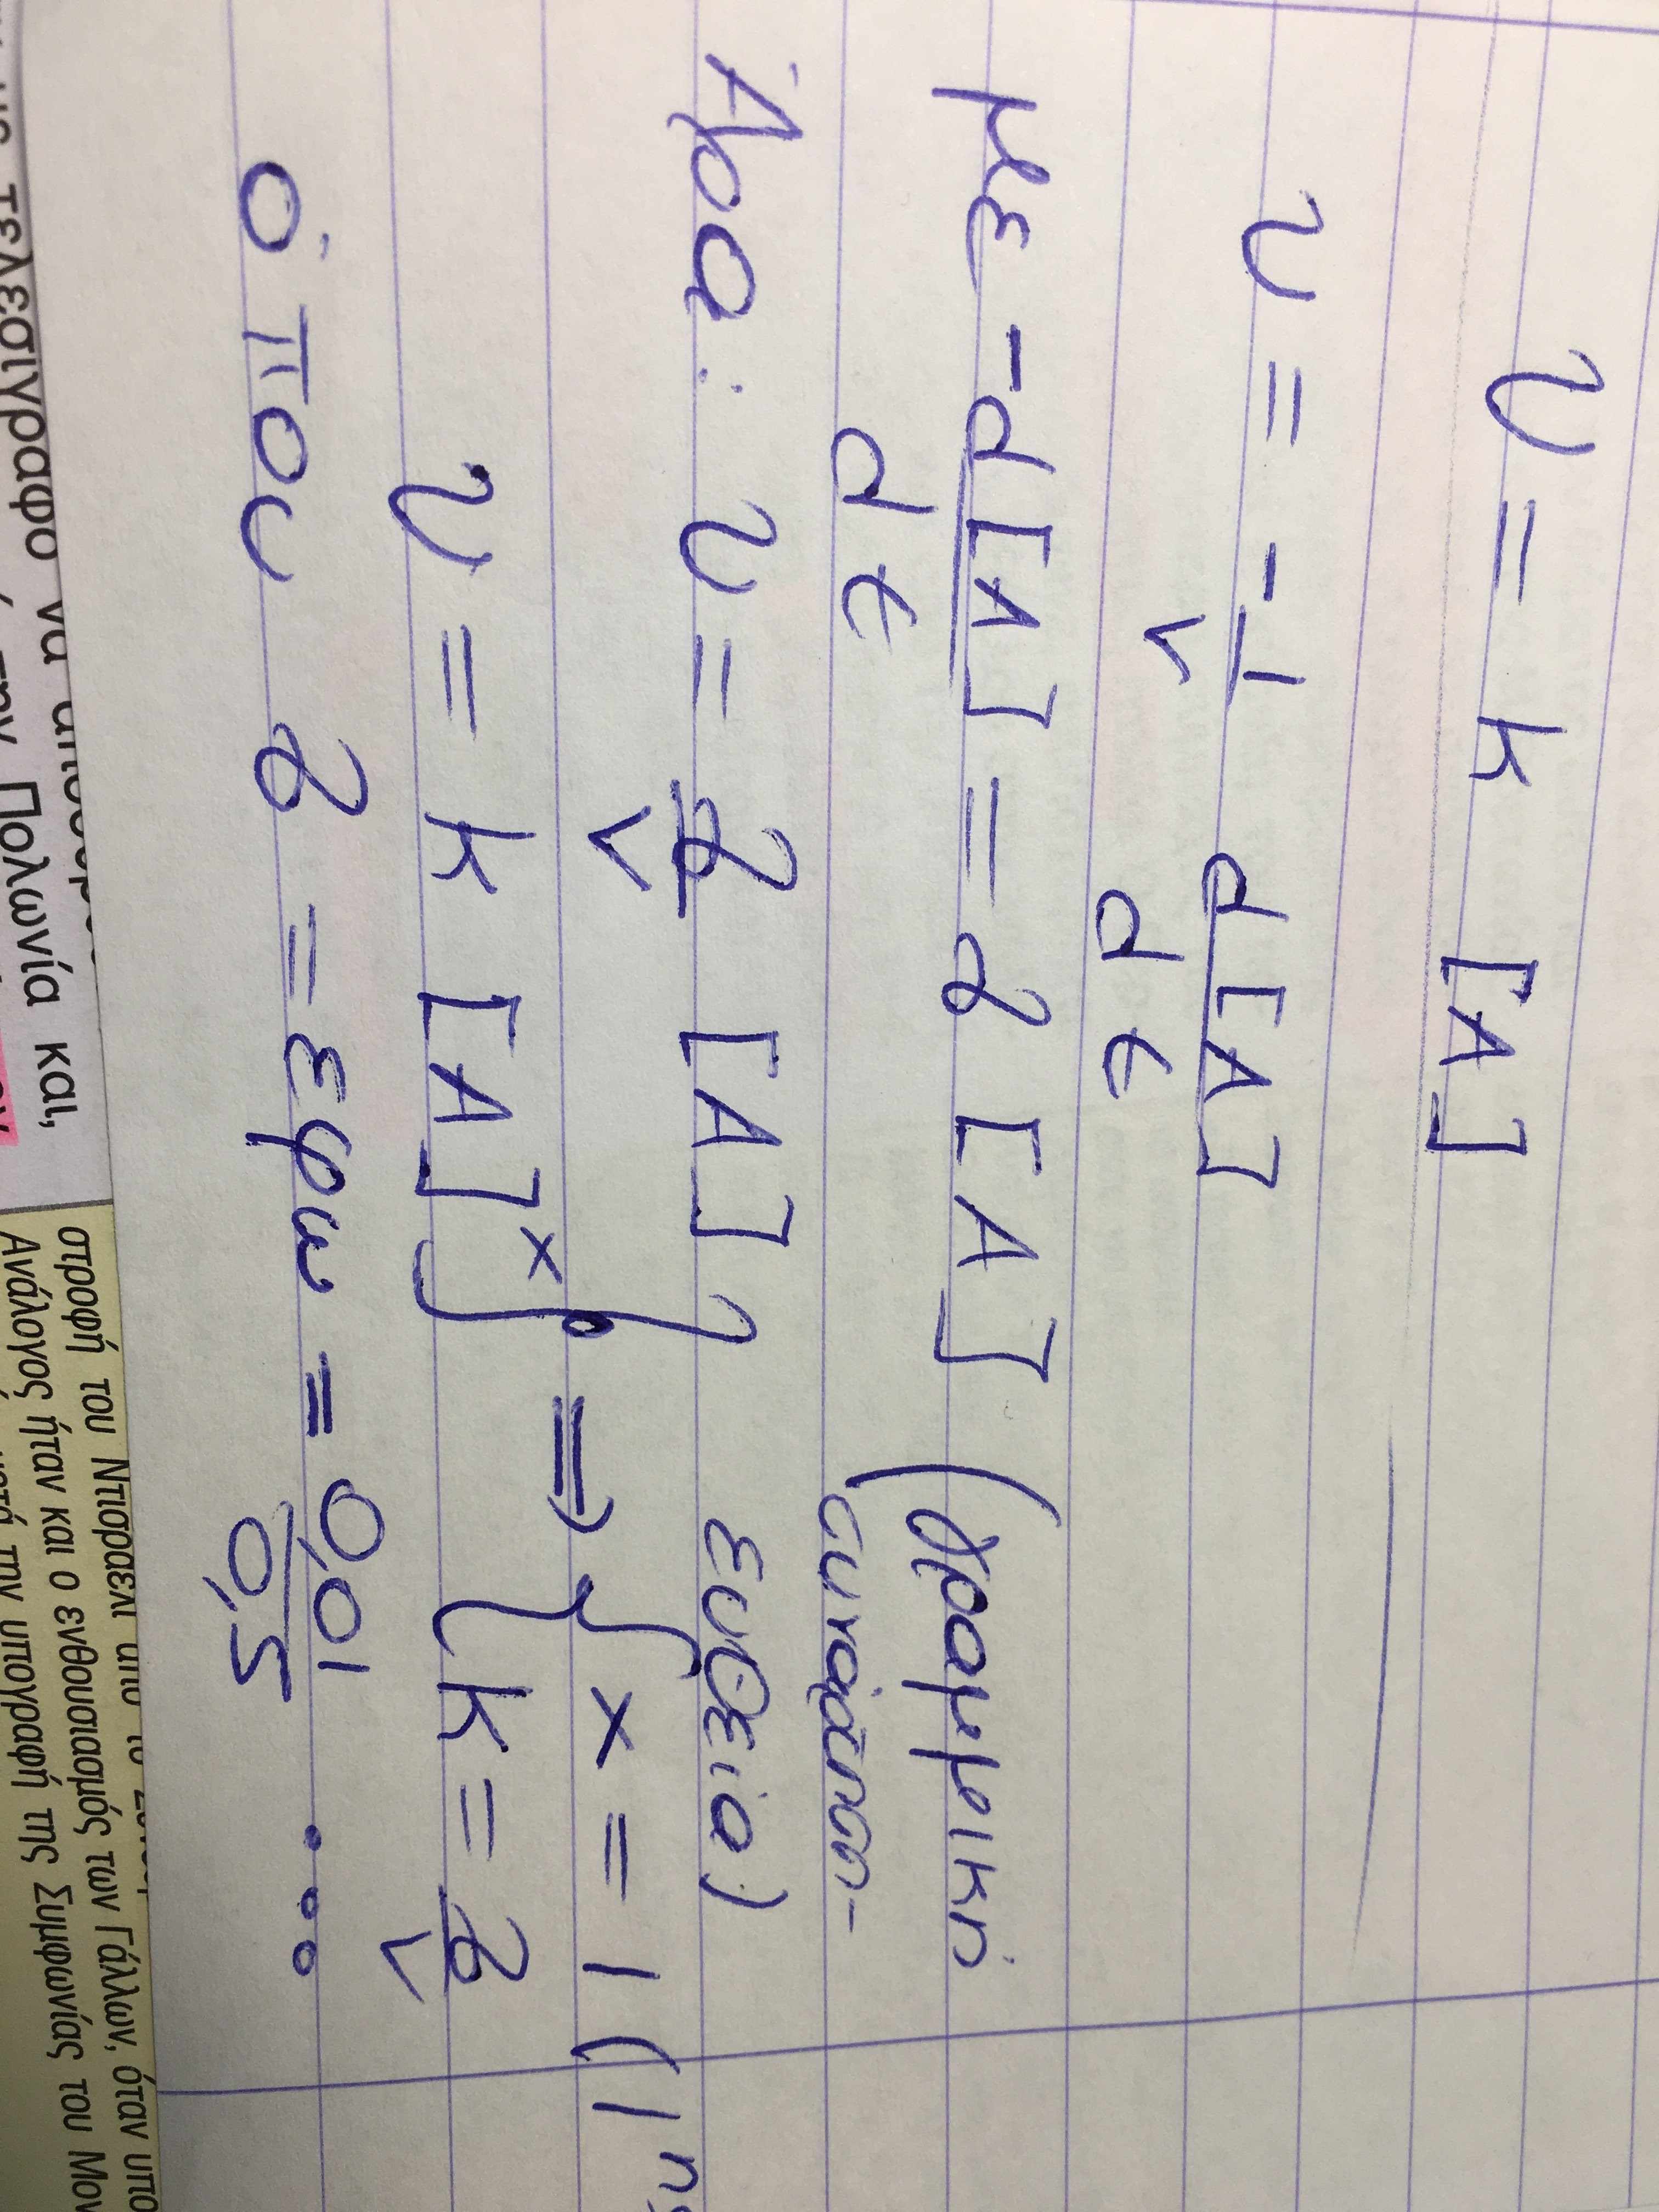 υ = k [A]
υ = - 1/ν d[A]/dt
με - d[A]/dt = λ [A] (γραμμική
συνάρτηση-
Άρα: υ = λ/ν [A] ευθεία)
⇒ { x = 1 (1ης
υ = k [A]ˣ k = λ/ν
όπου λ = εφω = 0,01/0,5 ...
στροφή του Ντισραέλι από το
Ανάλογος ήταν και ο ενθουσιασμός των Γάλλων, όταν υπο
κατά την υπογραφή της Συμφωνίας του Μον
τελεσίγραφο να
την Πολωνία και,